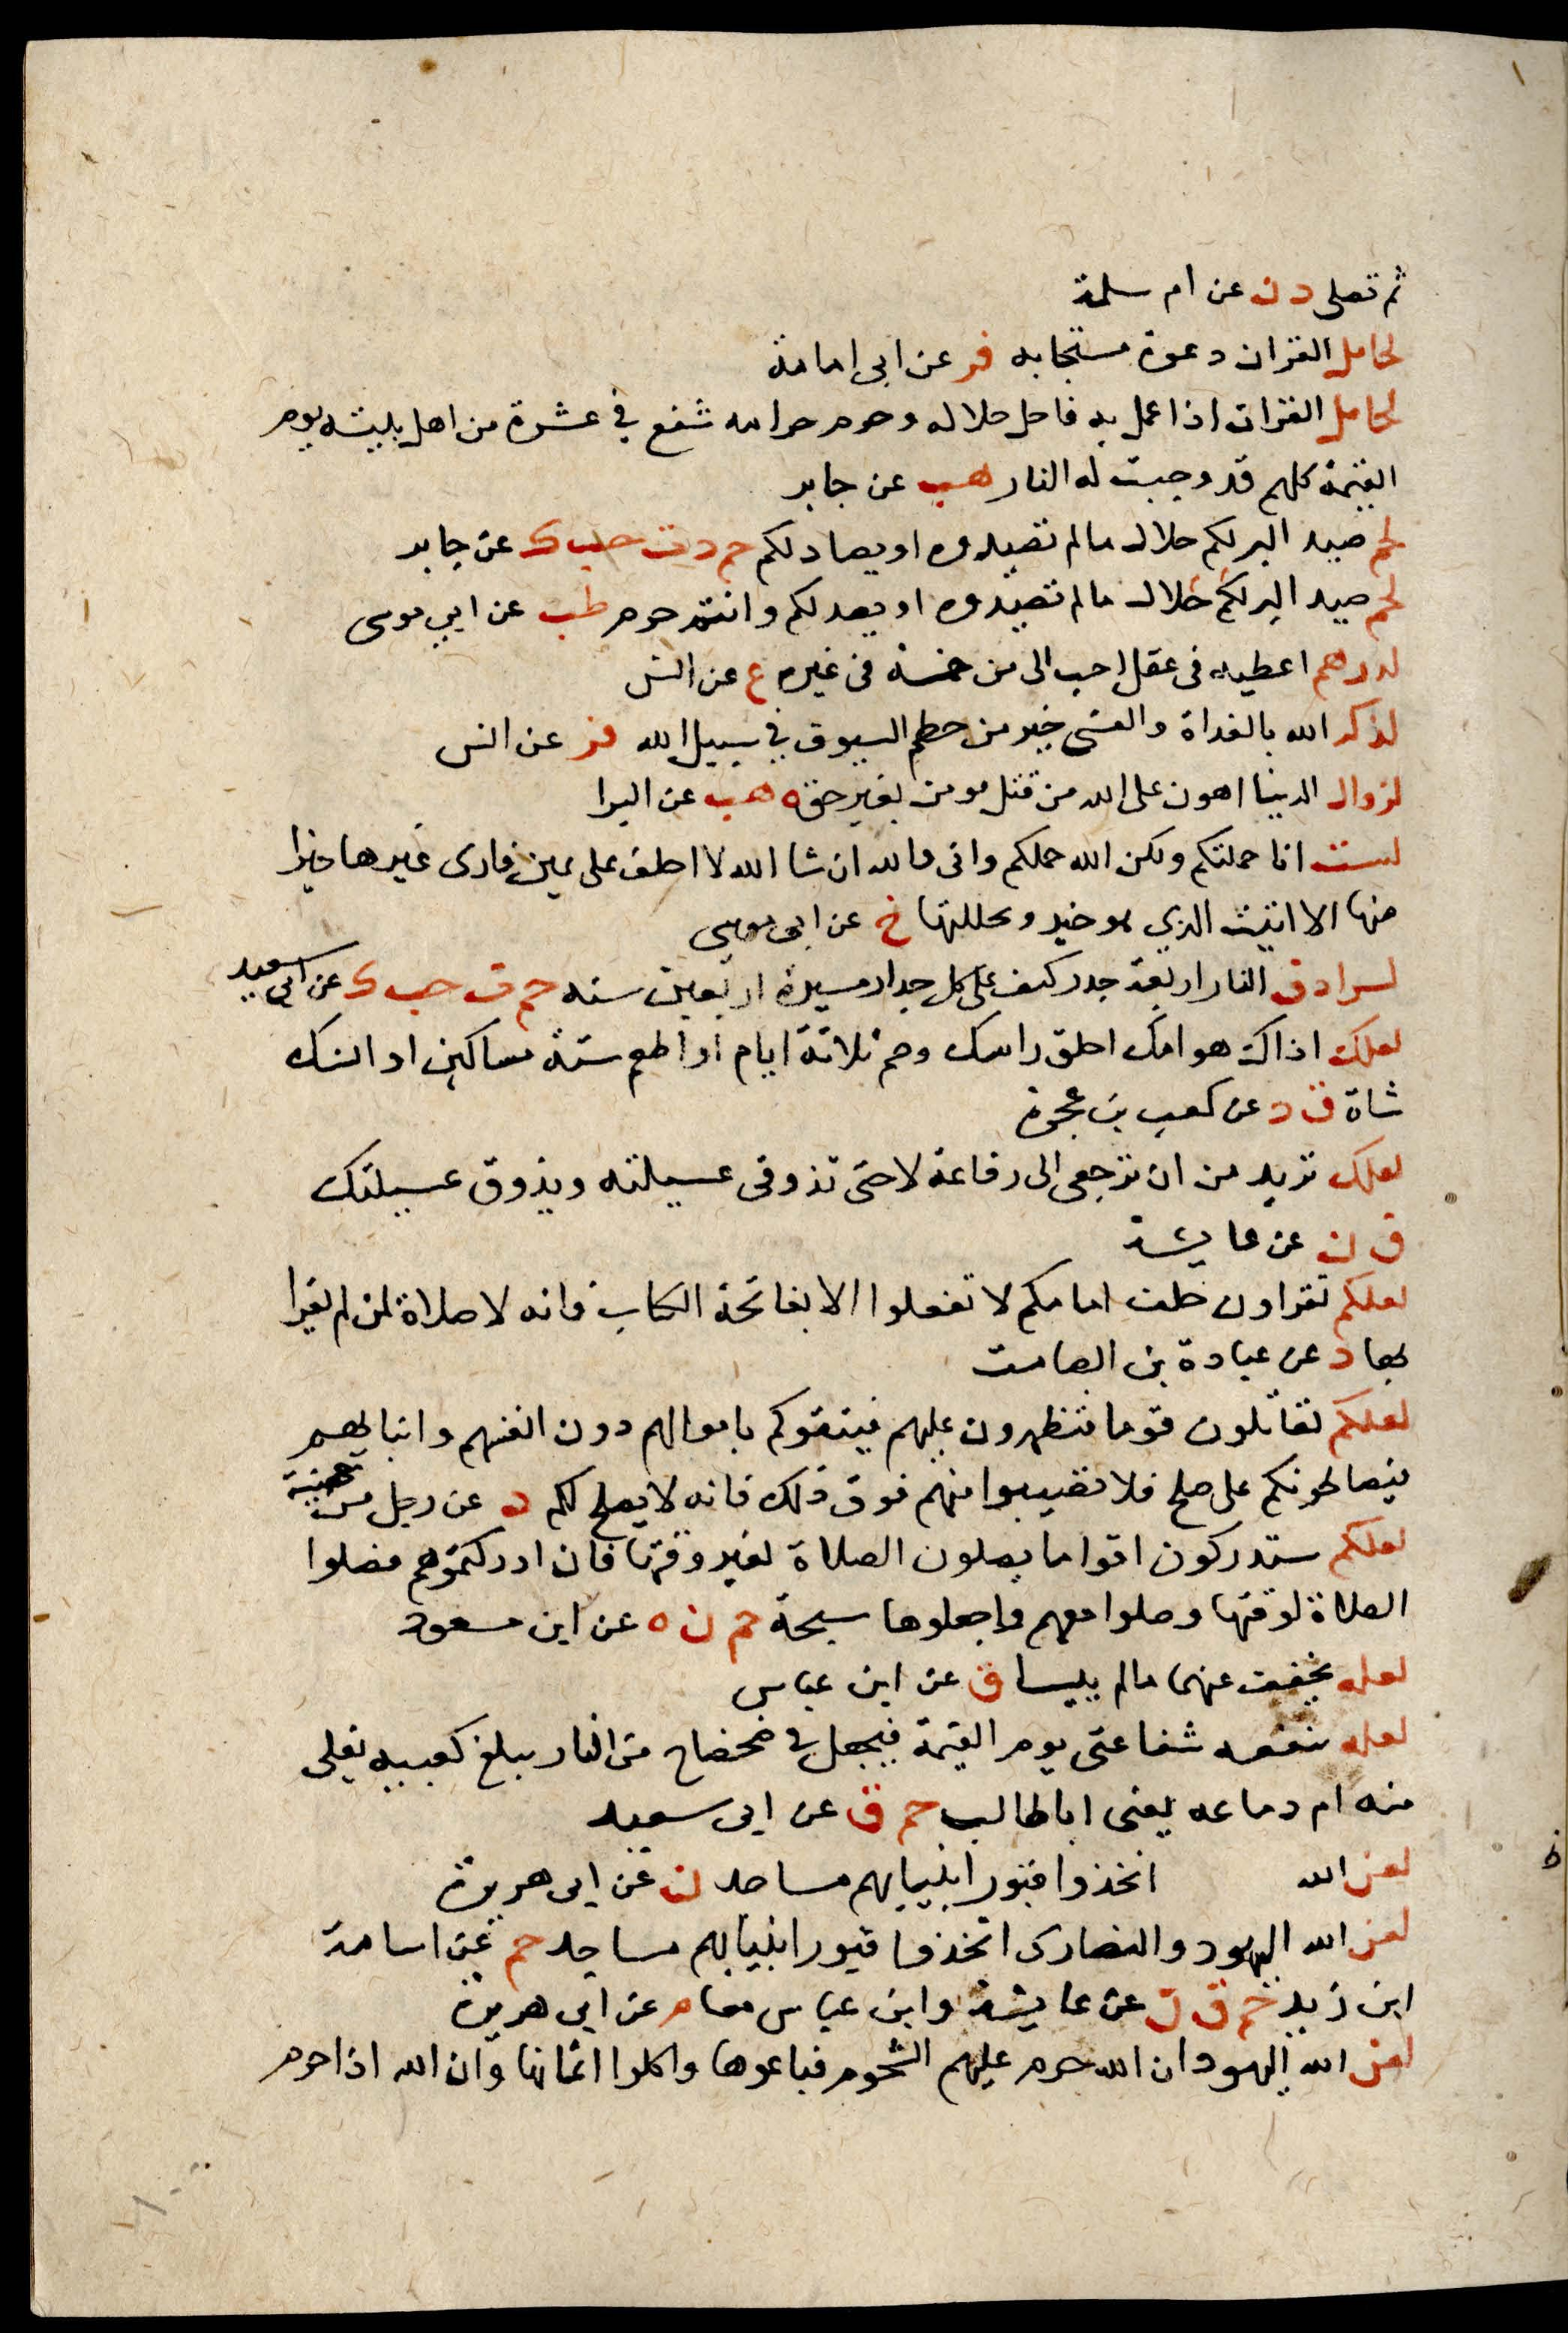 ثم تصلى د ن عن ام سلمة
لحامل القران دعوة مستجابه فر عن ابى امامة
لحامل القران اذا عمل به فاحل حلاله وحرم حرامه شفع في عشرة من اهل بيته يوم
القيمة كلهم قد وجبت له النار هب عن جابر
لحم صيد البر لكم حلال مالم تصيدوه او يصاد لكم حم د ت حب ك عن جابر
لحم صيد البر لكم حلال مالم تصيدوه او يصد لكم وانتم حرم طب عن ابي موسى
لدرهم اعطيه فى عقل احب الى من خمسة فى غيره ع عن انس
لذكر الله بالغداة والعشى خير من حطم السيوف في سبيل الله فر عن انس
لزوال الدنيا اهون على الله من قتل مومن بغير حق ه هب عن البرا
لست انا حملتكم ولكن الله حملكم وانى والله ان شا الله لا احلف على يمين فارى غيرها خيرا
منها الا اتيت الذي هو خير وتحللتها خ عن ابى موسى
لسرادق النار اربعة جدر كثف على كل جدار مسيرة اربعين سنه حم ت حب ك عن ابى سعيد
لعلك اذاك هوامك احلق راسك وصم ثلاثة ايام او اطعم ستة مساكين او انسك
شاة ق د عن كعب بن عجرة
لعلك تريدين ان ترجعى الى رفاعة لا حتى تذوقى عسيلته ويذوق عسيلتك
ق ن عن عايشة
لعلكم تقراون خلف امامكم لا تفعلوا الا بفاتحة الكتاب فانه لا صلاة لمن لم يقرا
بها د عن عبادة بن الصامت
لعلكم تقاتلون قوما فتظهرون عليهم فيتقوكم باموالهم دون انفسهم وابنايهم
فيصالحونكم على صلح فلا تصيبوا منهم فوق ذلك فانه لا يصلح لكم د عن رجل من جهينة
لعلكم ستدركون اقواما يصلون الصلاة لغير وقتها فان ادركتموهم فصلوا
الصلاة لوقتها وصلوا معهم واجعلوها سبحة حم ن ه عن ابن مسعود
لعله يخفف عنهما مالم ييبسا ق عن ابن عباس
لعله تنفعه شفاعتى يوم القيمة فيجعل في ضحضاح من النار يبلغ كعبيه يغلى
منه ام دماعه يعنى ابا طالب حم ق عن ابى سعيد
لعن الله اتخذوا قبور انبيايهم مساجد ن عن ابى هريرة
لعن الله اليهود والنصارى اتخذوا قبور انبيايهم مساجد حم عن اسامة
ابن زيد حم ق ن عن عايشة وابن عباس معا م عن ابى هريرة
لعن الله اليهود ان الله حرم عليهم الشحوم فباعوها واكلوا اثمانها وان الله اذا حرم